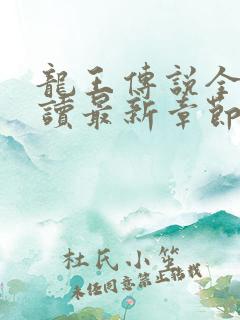 龍王傳說全
讀最新章節
杜氏小笙
未經同意禁止轉載